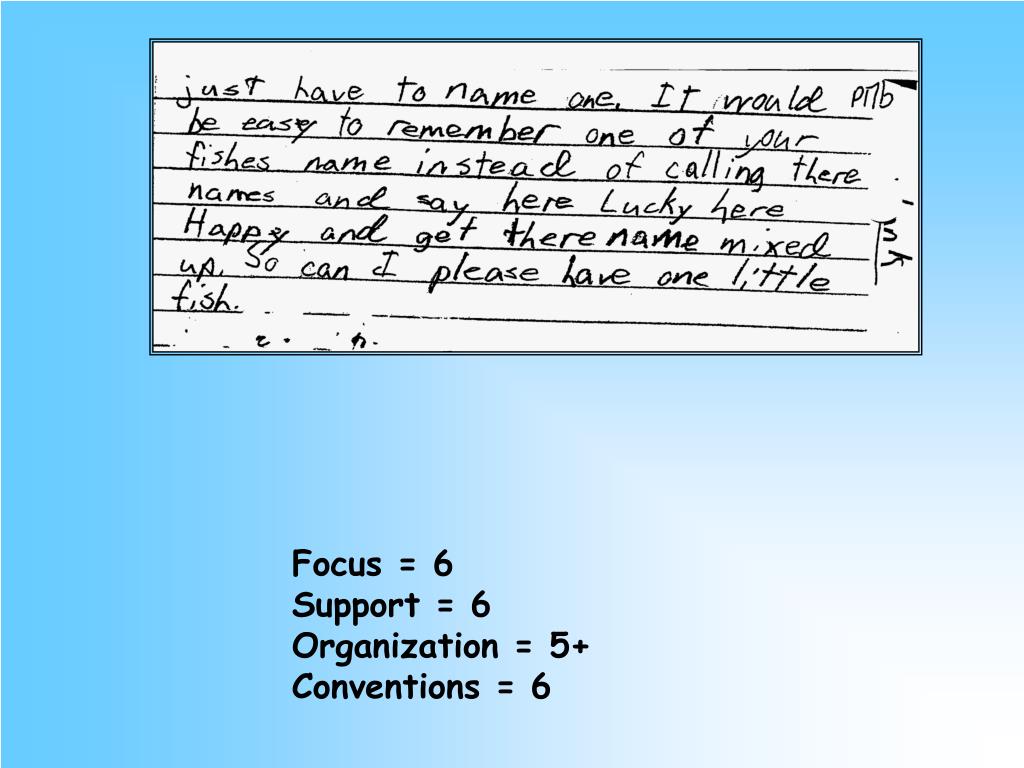 just have to name one. It would
be easy to remember one of your
fishes name instead of calling there
names and say here Lucky here
Happy and get there name mixed
up. So can I please have one little
fish.
Focus = 6
Support = 6
Organization = 5+
Conventions = 6